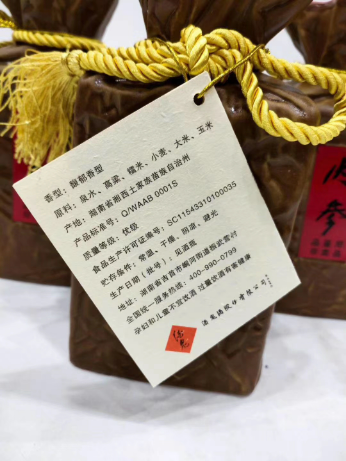 香型：馥郁香型
原料：泉水、高粱、糯米、小麦、大米、玉米
产地：湖南省湘西土家族苗族自治州
产品标准号：Q/WAAB 0001S
质量等级：优级
食品生产许可证编号：SC11543310100035
贮存条件：常温、干燥、阴凉、避光
生产日期（批号）：见酒瓶
地址：湖南省吉首市振武营村
全国统一服务热线：400-990-0799
孕妇和儿童不宜饮酒 过量饮酒有害健康
酒鬼酒股份有限公司